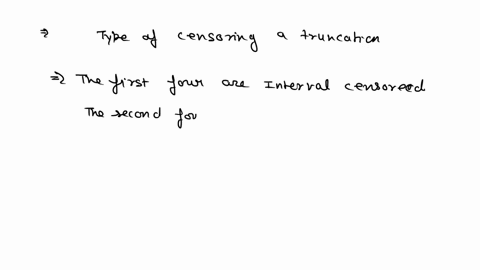 ⇒ Type of censoring a truncation
⇒ The first four are Interval censored
The second fo